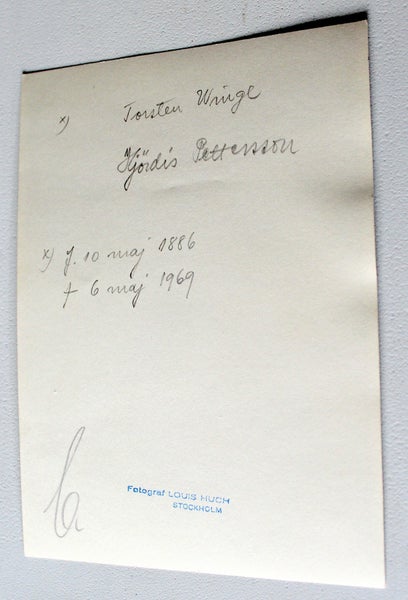 x) Torsten Winge
Hjördis Pettersson
x) f. 10 maj 1886
† 6 maj 1969
Fotograf LOUIS HUCH
STOCKHOLM